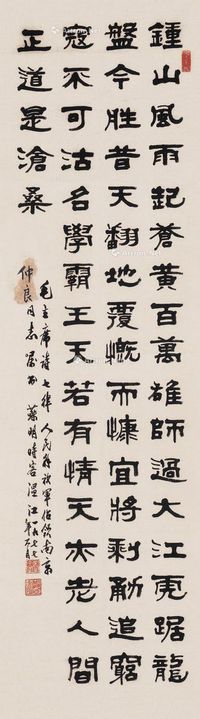 鍾山風雨起蒼黃百萬雄師過大江虎踞龍
盤今胜昔天翻地覆慨而慷宜將剩勇追窮
寇不可沽名學霸王天若有情天亦老人間
正道是滄桑
毛主席詩七律人民解放軍佔領南京
仲良同志屬 蔡明時客溫江一九七七年 月